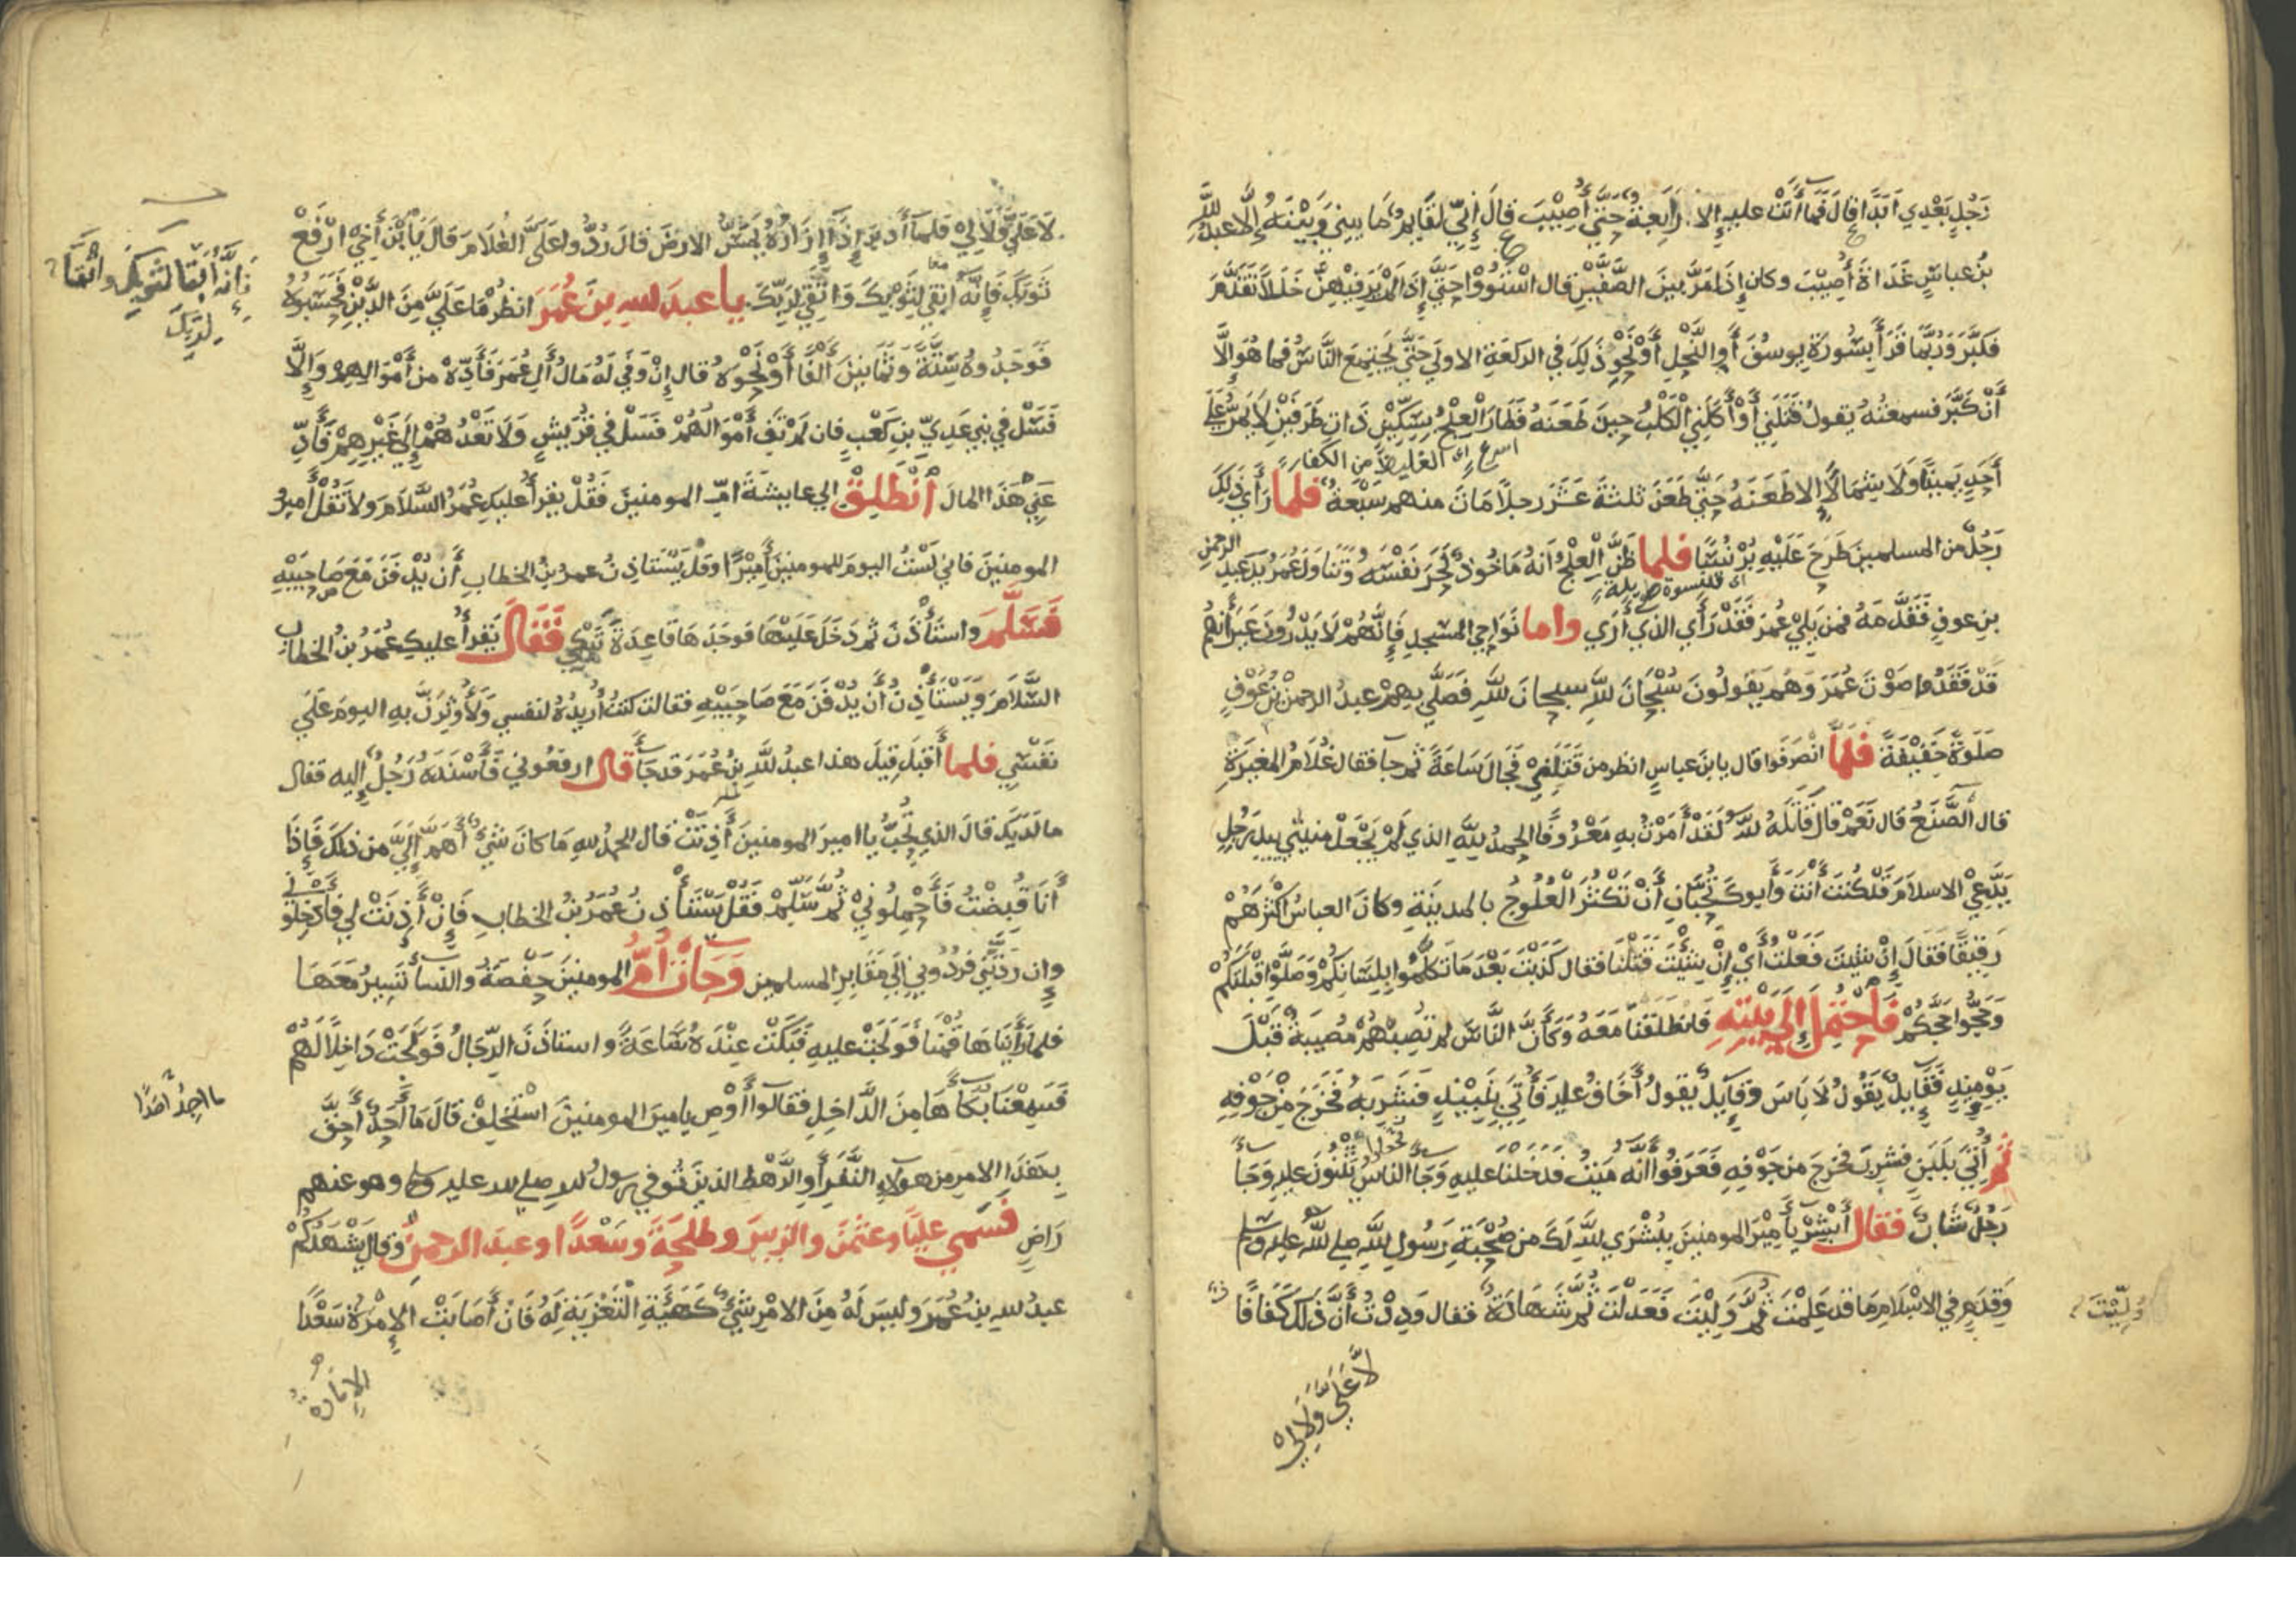 رَجُلٍ بَعْدِي اَبَدًا قال فَمَا أَتَتْ عليه إِلا رَابِعَةٌ حَتَّى أُصِيْبَ قَالَ إِنِّي لَقَايِمٌ مَا بيني وَبَيْنَهُ إِلَّا عبدُ اللَّهِ
بْنُ عباسٍ غَدَاةَ أُصِيْبَ وكان إِذَا مَرَّ بينَ الصَّفَّيْنِ قال اسْتَوُوْا حَتَّى إِذَا لَمْ يَرَ فِيْهِنَّ خَلَلاً تَقَدَّمَ
فَكَبَّرَ وَرُبَّمَا قَرَأَ بِسُورَةِ يوسُفَ أَوِ النَّحْلِ أَوْ نَحْوِ ذَلِكَ في الركعَةِ الاولي حَتَّى يَجتمِعَ النَّاسُ فما هُوَ اِلَّا
أَنْ كَبَّرَ فسمعتُهُ يقولُ قَتَلَنِي أَوْ أَكَلَنِي الْكَلْبُ حِينَ طَعَنَهُ فَطَارَ الْعِلْجُ بِسِكِّيْنٍ ذَاتِ طَرَفَيْنِ لَا يَمُرُّ عَلَى
اسرع اي الغليظ من الكفار
أَحَدٍ يَمِينًا وَلَا شِمَالًا إِلا طَعَنَهُ حَتَّى طَعَنَ ثلثةَ عَشَرَ رجلًا مَاتَ منهم سَبْعَةٌ فلما رَأَي ذَلِكَ
رَجُلٌ من المسلمينَ طَرَحَ عَلَيْهِ بُرْنُسًا فلما ظَنَّ الْعِلْجُ أَنهُ مَاخُوذٌ نَحَرَ نَفْسَهُ وَتَنَاوَلَ عُمَرُ يَدَ عَبدِ الرحمن
اي قلنسوة طويلة
بنِ عوفٍ فَقَدَّمَهُ فمن يَلِي عُمَرَ فَقَدْ رَأَي الذي أَرَي واما نَوَاحِي المسْجِدِ فَإِنَّهُمْ لَا يَدْرُونَ غَيْرَ أَنهم
قَدْ فَقَدُوا صَوْتَ عُمَرَ وَهُم يَقولُونَ سُبْحَانَ اللَّهِ سبحانَ اللَّهِ فَصَلَّى بِهِمْ عبدُ الرحمنِ بْنُ عَوْفٍ
صَلَوةً خَفِيْفَةً فَلَمَّا انْصَرَفُوا قال يا بنَ عباسٍ انظر من قَتَلَنِي فَجَالَ سَاعَةً ثم جآ فقال غُلَامُ المغيرَةِ
قال الصَّنَعُ قال نَعَمْ قال قَاتَلَهُ اللَّهُ لَقَدْ أَمَرْتُ بِهِ مَعْرُوفًا الحمدُ لِلَّهِ الذي لَمْ يَجْعَلْ مِيتَتِي بِيَدِ رَجُلٍ
يَدَّعِي الاسلامَ قَدْ كُنْتَ أَنْتَ وَأَبوكَ تُحِبَّانِ أَنْ تَكْثُرَ الْعُلُوجُ بالمدينةِ وكانَ العباسُ اكْثَرَهُمْ
رَقِيْقًا فَقَالَ إِنْ شِئْتَ فَعَلْتُ أَيْ إِنْ شِئْتَ قَتَلْنَا فقال كَذَبْتَ بَعْدَ مَا تَكَلَّمُوا بِلِسَانِكُمْ وَصَلَّوْا قِبْلَتَكُمْ
وَحَجُّوا حَجَّكُمْ فَاحْتُمِلَ إِلَى بَيْتِهِ فَانْطَلَقْنَا مَعَهُ وَكَأَنَّ النَّاسَ لم تُصِبْهُمْ مُصِيبَةٌ قَبْلَ
يَوْمِئِذٍ فَقَايِلٌ يَقُولُ لَا بَاسَ وَقَايِلٌ يقولُ أَخَافُ عليه فَأُتِيَ بِنَبِيْذٍ فَشَرِبَهُ فَخَرَجَ مِنْ جَوْفِهِ
ثم أُتِيَ بِلَبَنٍ فشرِبَ فخرجَ من جَوْفِهِ فَعَرَفُوا أَنَّهُ مَيِّتٌ فَدَخَلْنَا عليهِ وَجَآ الناسُ يُثْنُونَ عليهِ وَجَآ
رَجُلٌ شَابٌّ فَقَالَ أَبْشِرْ يَا أَمِيْرَ المومنينَ بِبُشْرَي اللَّهِ لَكَ من صُحْبَةِ رَسُولِ اللَّهِ صلي اللَّه عليه وسلم
وَقَدَمٍ في الاسْلَامِ مَا قد عَلِمْتَ ثُمَّ وَلِيْتَ فَعَدَلْتَ ثُمَّ شَهَادَةٌ فقال وَدِدْتُ أَنَّ ذَلِكَ كَفَافًا
وُلِّيْتَ
لَا عَلَيَّ وَلَا لِي
لَا عَلَيَّ وَلَا لِي فَلَمَّا أَدْبَرَ إِذَا إِزَارُهُ يَمَسُّ الارضَ قال رُدُّوا عَلَيَّ الغُلَامَ قال يَا بْنَ أَخِيْ ارْفَعْ
ثَوْبَكَ فَإِنَّهُ أَنْقَى لِثَوْبِكَ وَاَتْقَى لِرَبِّكَ يا عبدَ اللهِ بنَ عُمَرَ انظُرْ مَا عَلَيَّ مِنَ الدَّيْنِ فَحَسَبُوهُ
فَإِنَّهُ أَبْقَا لثوبِكَ وَاَتْقَا
لِرَبِّكَ
فَوَجَدُوهُ سِتَّةً وَثَمَانِينَ أَلْفًا أَوْ نَحْوَهُ قال إِنْ وَفَي لَهُ مَالُ آلِ عُمَرَ فَأَدِّهِ من أَمْوَالِهِمْ وَإِلَّا
فَسَلْ في بني عَدِيِّ بنِ كَعْبٍ فان لم تَفِ أَمْوَالُهُمْ فَسَلْ في قُرَيْشٍ وَلَا تَعْدُهُمْ إِلَي غَيْرِهِمْ فَأَدِّ
عَنِّي هَذَا المالَ اَنْطَلِقْ الي عايشةَ امِّ المومنينَ فَقُلْ يقرأُ عليكِ عُمَرُ السَّلَامَ ولا تَقُلْ أَمِيرُ
المومنِينَ فاني لَسْتُ اليومَ للمومنينَ أَمِيْرًا وقل يَسْتَاذِنُ عمرُ بنُ الخطابِ أَن يُدْفَنَ مَعَ صَاحِبَيْهِ
فَسَلَّمَ واستَأْذَنَ ثم دَخَلَ عَلَيْهَا فوجَدَهَا قَاعِدَةً تَبْكِي فَقَالَ يَقرأُ عليكِ عُمَرُ بنُ الخطابِ
السَّلَامَ وَيَسْتَأْذِنُ أَن يُدْفَنَ مَعَ صَاحِبَيْهِ فقالت كنتُ أُرِيدُهُ لنفسي وَلَأُوثِرَنَّ بِهِ اليومَ عَلَي
نَفْسِي فلما أَقبلَ قِيلَ هذا عبدُ اللَّهِ بنُ عُمَرَ قد جَآ قال ارفعُوني فَأَسْنَدَهُ رَجُلٌ إِليه فقال
مالَدَيكَ قالَ الذي تُحِبُّ يا امير المومنينَ أَذِنَتْ قال الحمدُ للهِ مَا كانَ شيٌ أَهَمَّ إِلَيَّ من ذلكَ فَإِذَا
أَنَا قُبِضْتُ فَاحْمِلُونِي ثُمَّ سَلِّمْ فَقُلْ يَسْتَأْذِنُ عُمَرُ بنُ الخطابِ فَإِنْ أَذِنَتْ لي فَأَدْخِلُونِي
وإن رَدَّتْنِي فردُّوني إِلَي مَقَابِرِ المسلمين وَجَآتْ أُمُّ المومنينَ حَفْصَةُ والنسآ تَسِيرُ مَعَهَا
فلما رَأَيْنَاهَا قُمْنَا فَوَلَجَتْ عليه فَبَكَتْ عِنْدَهُ سَاعَةً واستاذَنَ الرِّجَالُ فَوَلَجَتْ دَاخِلًا لَهُمْ
فَسَمِعْنَا بُكَآهَا مِنَ الدَّاخِلِ فقالوا أَوْصِ يا ميرَ المومنينَ اسْتَخْلِفْ قَالَ مَا أَجِدُ أَحَقَّ
ما اجِدُ احَدًا
بِهَذَا الامرِ من هولآءِ النَّفَرِ أَوِ الرَّهْطِ الذينَ تُوفي رسولُ الله صلي الله عليه وسلم وهو عنهم
رَاضٍ فَسَمَّي عليًّا وعثمنَ والزبيرَ وطلحةَ وسَعْدًا وعبدَ الرحمنِ وَقال يَشْهَدُكُمْ
عبدُ اللهِ بنُ عُمَرَ وليسَ لَهُ مِنَ الامْرِ شَيٌ كَهَيْئَةِ التَّعْزِيَةِ لَهُ فَانْ أَصَابَتْ الإِمْرَةُ سَعْدًا
الإِمَارَةُ